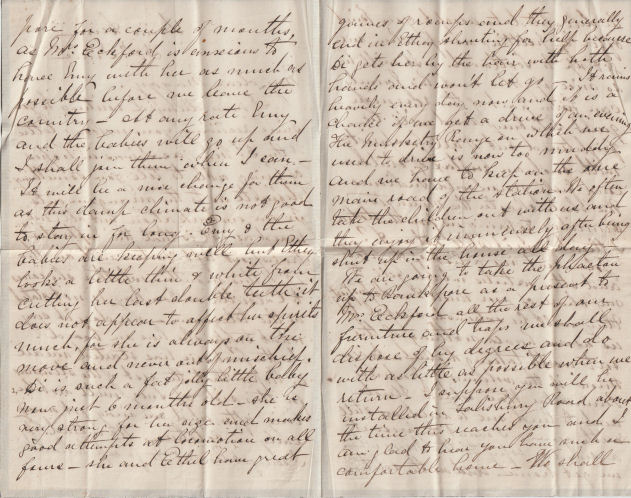 pore for a couple of months,
as Mrs. Eckford is anxious to
have Emy with her as much as
possible before we leave the
country – At any rate Emy
and the babies will go up and
I shall join them when I can –
It will be a nice change for them
as this damp climate is not good
to stay in for long. Emy & the
babies are keeping well but Ethey
looks a little thin & white from
cutting her last double tooth; it
does not appear to affect her spirits
much for she is always on the
move and never out of mischief.
Di is such a fat jolly little baby
now just 6 months old – she is
very strong for her size and makes
good attempts at locomotion on all
fours – she and Ethel have great
games of romps and they generally
end in Ethey shouting for help because
Di gets her by the hair with both
hands and won't let go – It rains
heavily every day now and it is a
chance if we get a drive of an evening
The Musketry Range on which we
used to drive is now too muddy
and we have to keep on the one
main road of the station. We often
take the children out with us and
they enjoy it immensely after being
shut up in the house all day.
We are going to take the phaeton
up to as a present to
Mrs. Eckford all the rest of our
furniture and traps we shall
dispose of by degrees and do
with as little as possible when we
return – I suppose you will be
installed in Salisbury Road about
the time this reaches you and I
am glad to hear you have such a
comfortable home – We shall